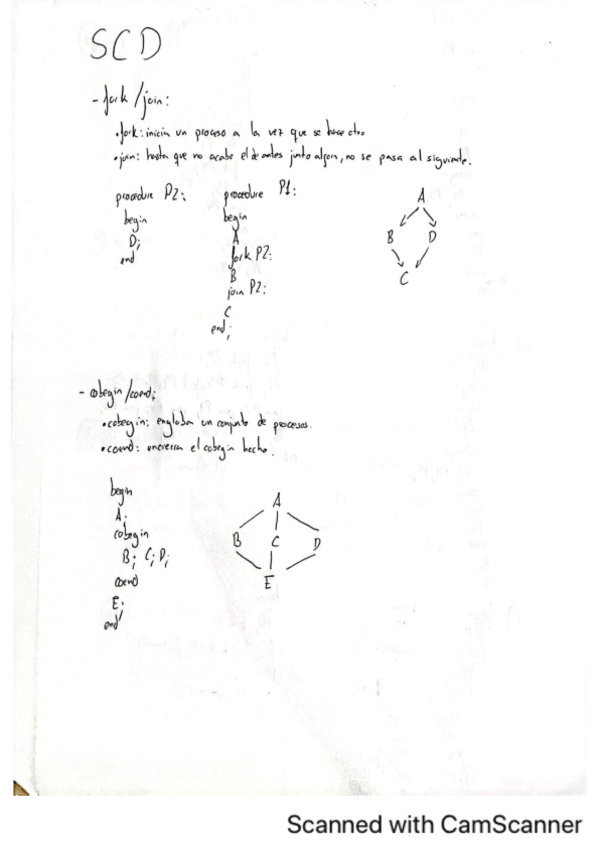 SCD
- fork/join:
• fork: inicia un proceso a la vez que se hace otro
• join: hasta que no acabe el de antes junto algon, no se pasa al siguiente.
procedure P2;
begin
D;
end
procedure P1:
begin
A
fork P2:
B
join P2:
C
end;
A
B D
C
- cobegin/coend;
• cobegin: engloba un conjunto de procesos.
• coend: encierra el cobegin hecho.
begin
A;
cobegin
B; C; D;
coend
E;
end
A
B C D
E
Scanned with CamScanner